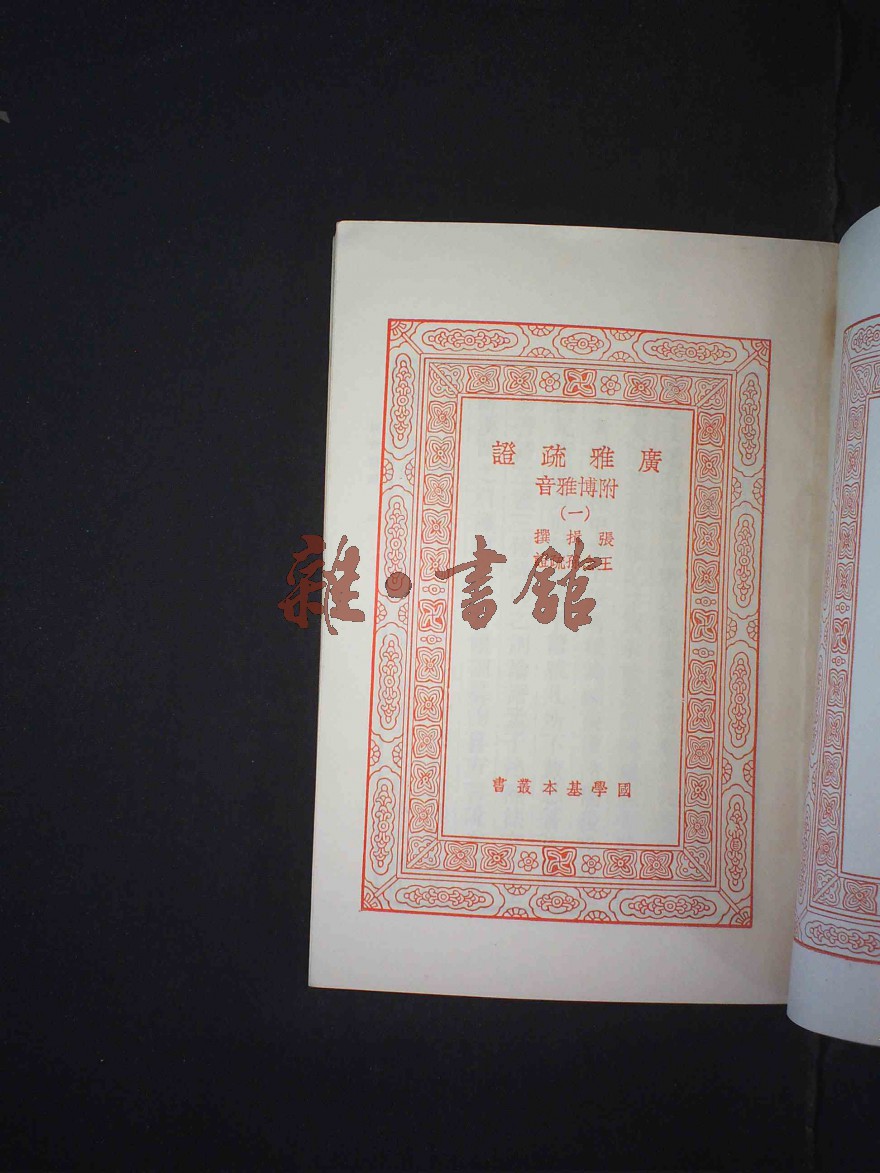 廣雅疏證
附博雅音
(一)
張揖撰
王念孫疏證
國學基本叢書
雜·書館